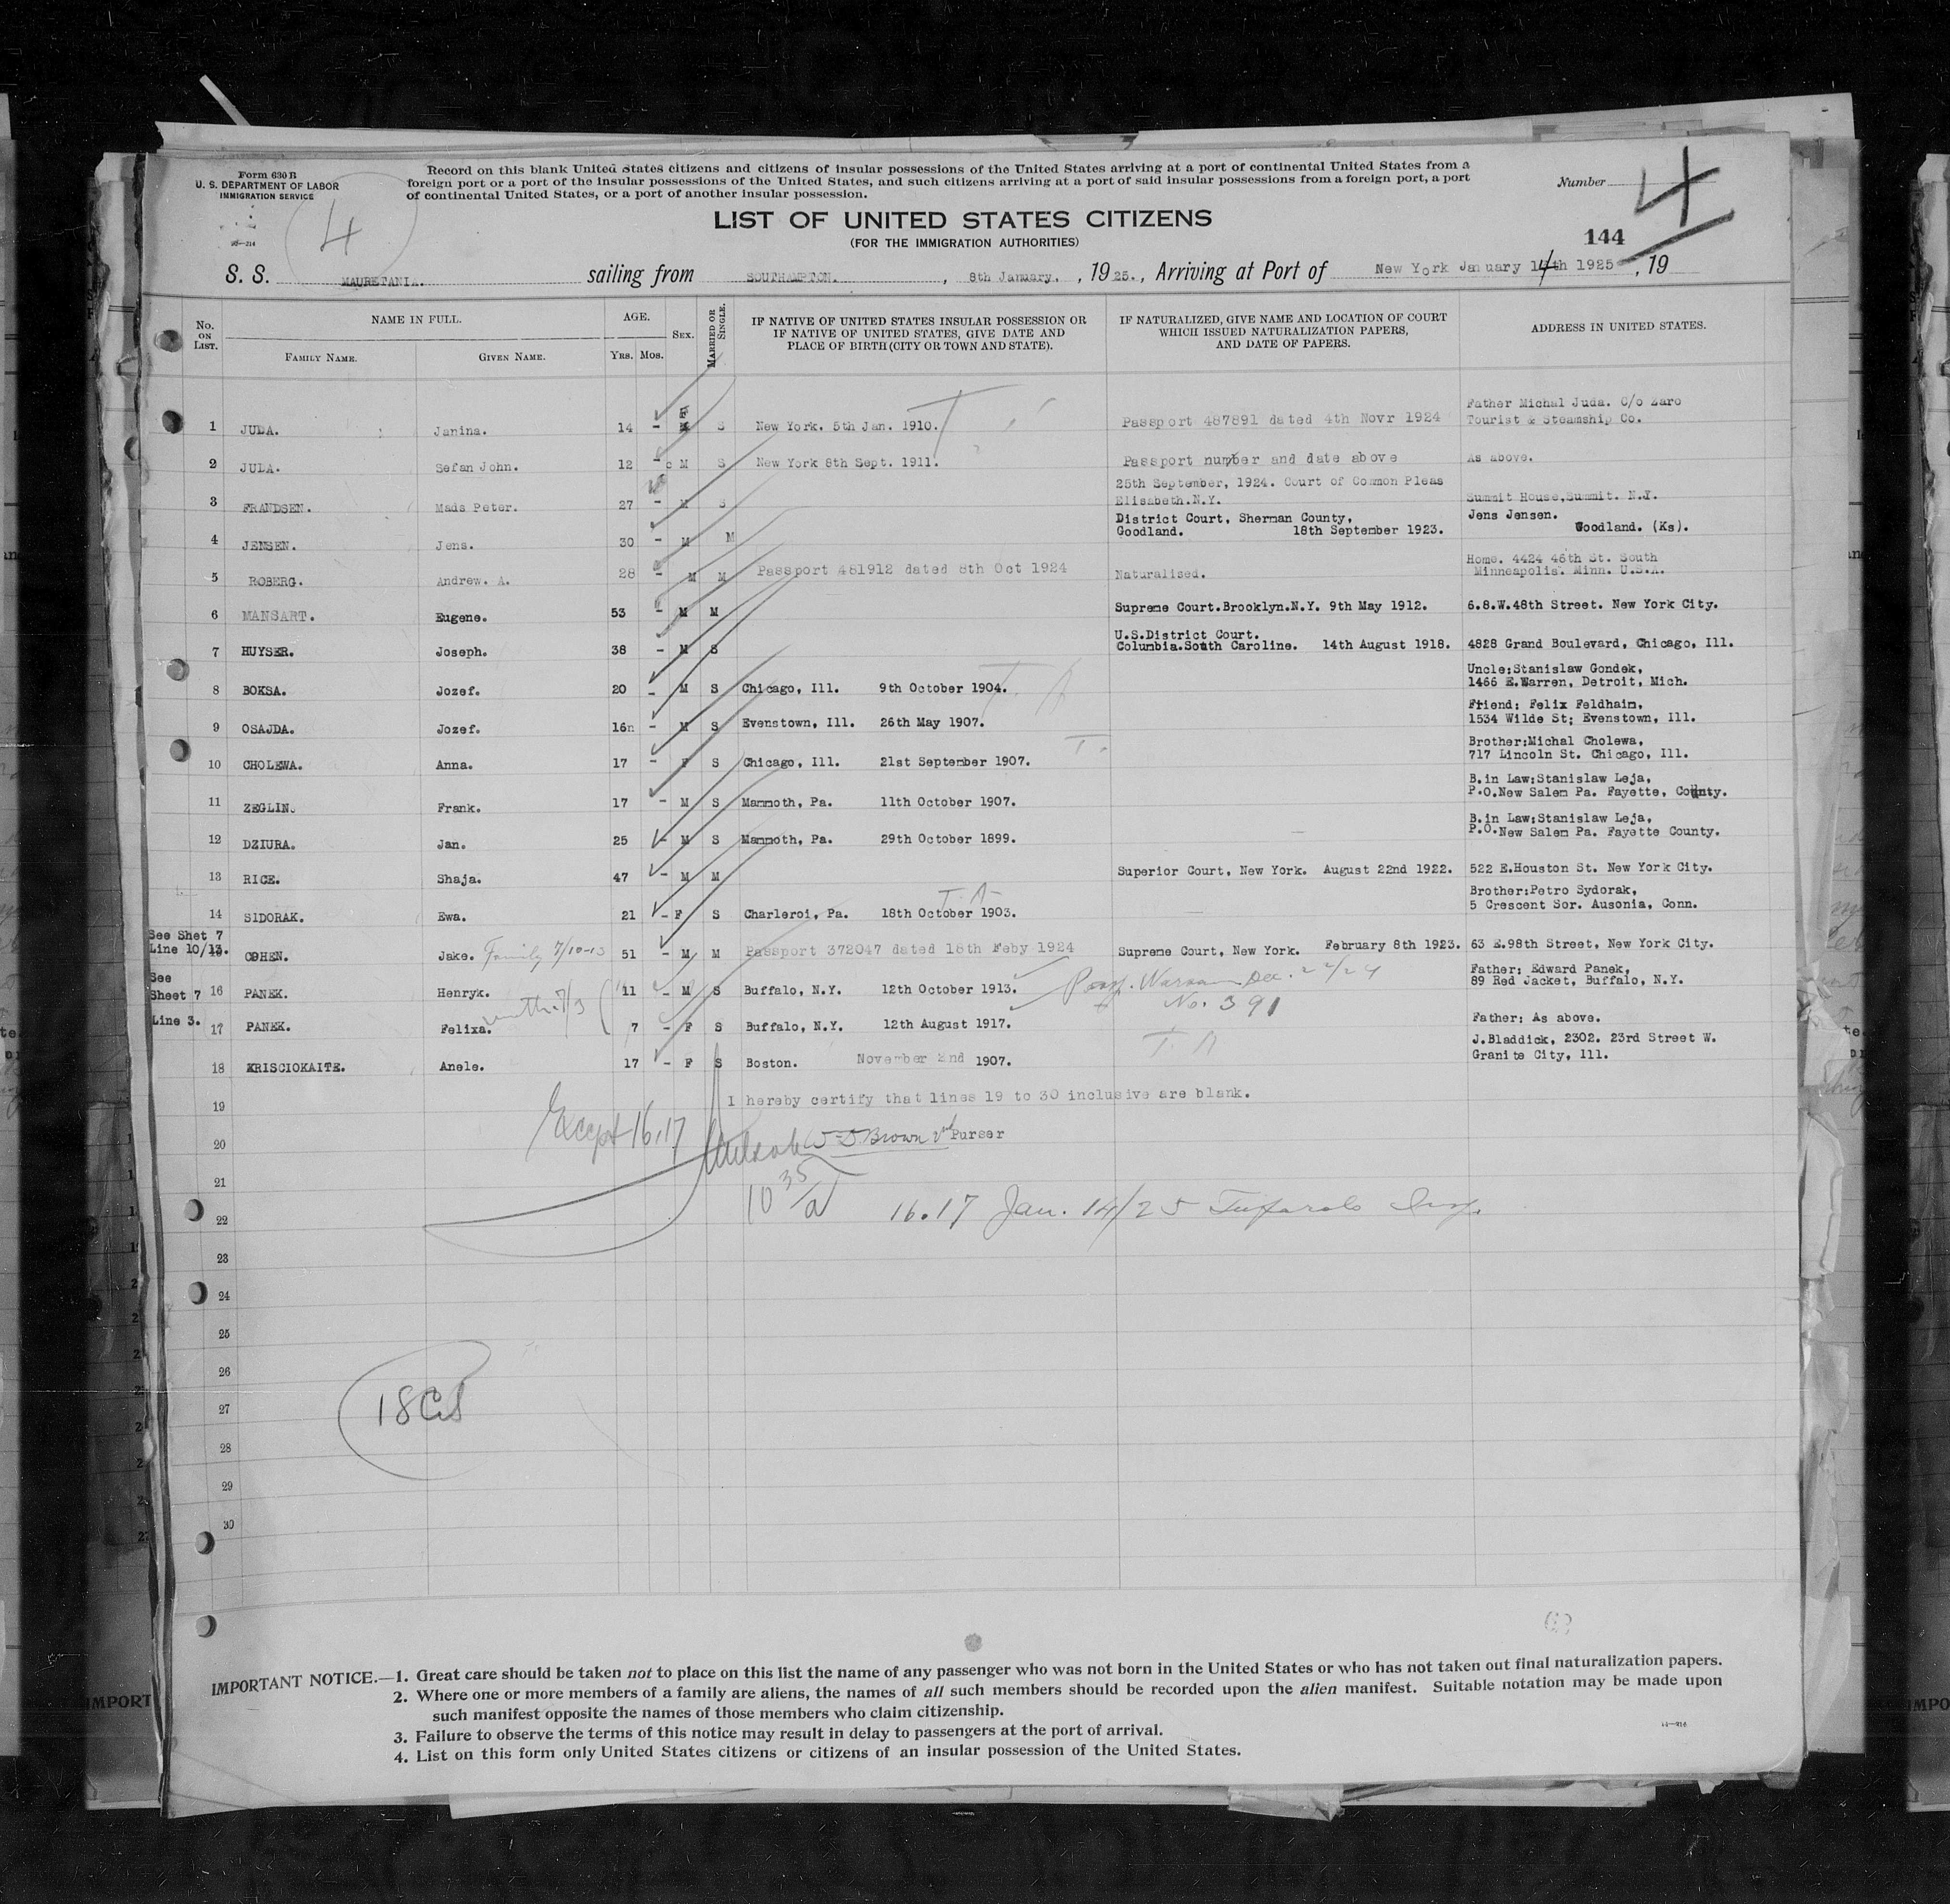 Form 630 B
U. S. DEPARTMENT OF LABOR
IMMIGRATION SERVICE
Record on this blank United States citizens and citizens of insular possessions of the United States arriving at a port of continental United States from a
foreign port or a port of the insular possessions of the United States, and such citizens arriving at a port of said insular possessions from a foreign port, a port
of continental United States, or a port of another insular possession.
Number 4
4
144
LIST OF UNITED STATES CITIZENS
(FOR THE IMMIGRATION AUTHORITIES)
S. S. MAURETANIA. sailing from SOUTHAMPTON. , 8th January. , 1925. , Arriving at Port of New York January 14th 1925 , 19
No. ON LIST.
NAME IN FULL.
FAMILY NAME.
GIVEN NAME.
AGE.
YRS. MOS.
SEX.
MARRIED OR SINGLE.
IF NATIVE OF UNITED STATES INSULAR POSSESSION OR
IF NATIVE OF UNITED STATES, GIVE DATE AND
PLACE OF BIRTH (CITY OR TOWN AND STATE).
IF NATURALIZED, GIVE NAME AND LOCATION OF COURT
WHICH ISSUED NATURALIZATION PAPERS,
AND DATE OF PAPERS.
ADDRESS IN UNITED STATES.
Father Michal Juda. C/o Zaro
1 JUDA. Janina. 14 - F S New York. 5th Jan. 1910. Passport 487891 dated 4th Novr 1924 Tourist & Steamship Co.
2 JUDA. Sefan John. 12 - M S New York 8th Sept. 1911. Passport number and date above As above.
25th September, 1924. Court of Common Pleas
3 FRANDSEN. Mads Peter. 27 - M S Elisabeth.N.Y. Summit House,Summit. N.J.
District Court, Sherman County, Jens Jensen.
4 JENSEN. Jens. 30 - M M Goodland. 18th September 1923. Woodland. (Ks).
Home. 4424 46th St. South
5 ROBERG. Andrew. A. 28 - M M Passport 481912 dated 8th Oct 1924 Naturalised. Minneapolis. Minn. U.S.A.
6 MANSART. Eugene. 53 - M M Supreme Court.Brooklyn.N.Y. 9th May 1912. 6.8.W.48th Street. New York City.
U.S.District Court.
7 HUYSER. Joseph. 38 - M S Columbia.South Caroline. 14th August 1918. 4828 Grand Boulevard, Chicago, Ill.
Uncle;Stanislaw Gondek,
8 BOKSA. Jozef. 20 - M S Chicago, Ill. 9th October 1904. 1466 E.Warren, Detroit, Mich.
Friend: Felix Feldhaim,
9 OSAJDA. Jozef. 16 - M S Evenstown, Ill. 26th May 1907. 1534 Wilde St; Evenstown, Ill.
Brother:Michal Cholewa,
10 CHOLEWA. Anna. 17 - F S Chicago, Ill. 21st September 1907. 717 Lincoln St. Chicago, Ill.
B.in Law:Stanislaw Leja,
11 ZEGLIN. Frank. 17 - M S Mammoth, Pa. 11th October 1907. P.O.New Salem Pa. Fayette, County.
B.in Law:Stanislaw Leja,
12 DZIURA. Jan. 25 - M S Mammoth, Pa. 29th October 1899. P.O.New Salem Pa. Fayette County.
13 RICE. Shaja. 47 - M M Superior Court, New York. August 22nd 1922. 522 E.Houston St. New York City.
T. A
Brother:Petro Sydorak,
14 SIDORAK. Ewa. 21 - F S Charleroi, Pa. 18th October 1903. 5 Crescent Sor. Ausonia, Conn.
See Shet 7
Line 10/13. COHEN. Jake. Family 7/10-13 51 - M M Passport 372047 dated 18th Feby 1924 Supreme Court, New York. February 8th 1923. 63 E.98th Street, New York City.
See
Sheet 7
Line 3.
Father: Edward Panek,
16 PANEK. Henryk. 11 - M S Buffalo, N.Y. 12th October 1913. 89 Red Jacket, Buffalo, N.Y.
Warsaw Dec. 22/24
No. 391
17 PANEK. Felixa. 7 - F S Buffalo, N.Y. 12th August 1917. Father: As above.
T. A
J.Bladdick, 2302. 23rd Street W.
18 KRISCIOKAITE. Anele. 17 - F S Boston. November 2nd 1907. Granite City, Ill.
19 I hereby certify that lines 19 to 30 inclusive are blank.
Except 16.17
20 W D Brown Purser
21
10 35/a
22 16.17 Jan. 14/25 Insp.
23
24
25
26
27 18
28
29
30
IMPORTANT NOTICE.—1. Great care should be taken not to place on this list the name of any passenger who was not born in the United States or who has not taken out final naturalization papers.
2. Where one or more members of a family are aliens, the names of all such members should be recorded upon the alien manifest. Suitable notation may be made upon
such manifest opposite the names of those members who claim citizenship.
3. Failure to observe the terms of this notice may result in delay to passengers at the port of arrival.
4. List on this form only United States citizens or citizens of an insular possession of the United States.